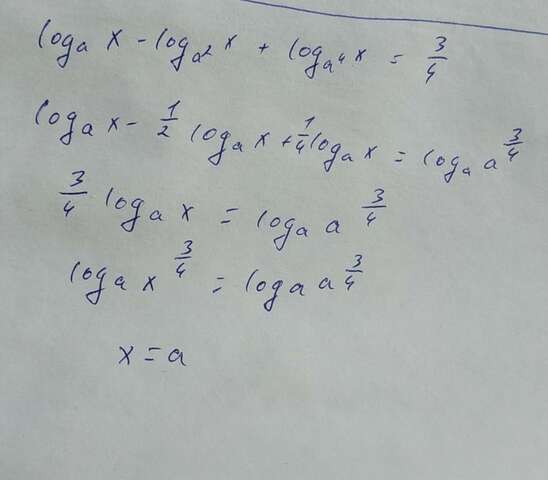 logₐ x - log_{a²} x + log_{a⁴} x = 3/4
logₐ x - 1/2 logₐ x + 1/4 logₐ x = logₐ a^{3/4}
3/4 logₐ x = logₐ a^{3/4}
logₐ x^{3/4} = logₐ a^{3/4}
x = a